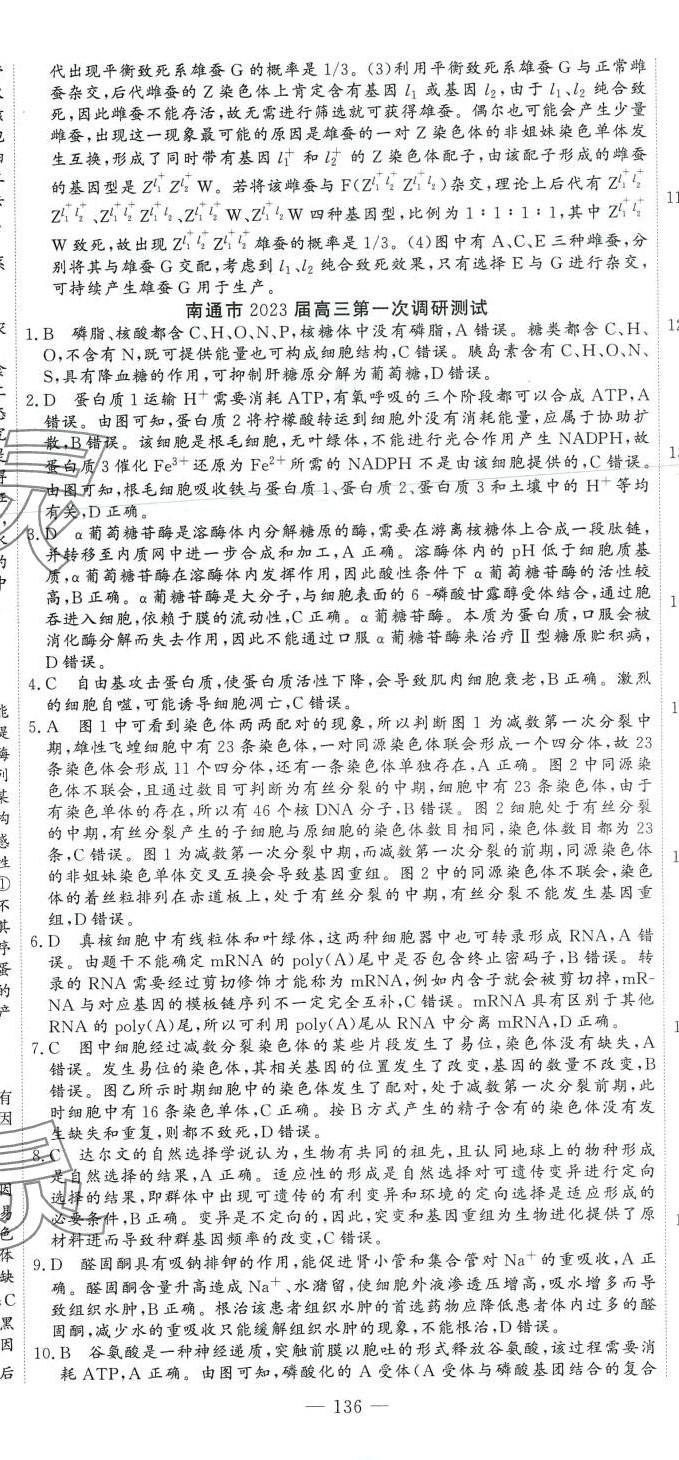 代出现平衡致死系雄蚕 G 的概率是 1/3。(3)利用平衡致死系雄蚕 G 与正常雌
蚕杂交,后代雌蚕的 Z 染色体上肯定含有基因 l₁ 或基因 l₂,由于 l₁、l₂ 纯合致
死,因此雌蚕不能存活,故无需进行筛选就可获得雄蚕。偶尔也可能会产生少量
雌蚕,出现这一现象最可能的原因是雄蚕的一对 Z 染色体的非姐妹染色单体发
生互换,形成了同时带有基因 l₁⁺ 和 l₂⁺ 的 Z 染色体配子,由该配子形成的雌蚕
四种基因型,比例为 1∶1∶1∶1,其中
雄蚕的概率是 1/3。(4)图中有 A、C、E 三种雌蚕,分
别将其与雄蚕 G 交配,考虑到 l₁、l₂ 纯合致死效果,只有选择 E 与 G 进行杂交,
可持续产生雄蚕 G 用于生产。
南通市 2023 届高三第一次调研测试
1. B 磷脂、核酸都含 C、H、O、N、P,核糖体中没有磷脂,A 错误。糖类都含 C、H、
O,不含有 N,既可提供能量也可构成细胞结构,C 错误。胰岛素含有 C、H、O、N、
S,具有降血糖的作用,可抑制肝糖原分解为葡萄糖,D 错误。
2. D 蛋白质 1 运输 H⁺ 需要消耗 ATP,有氧呼吸的三个阶段都可以合成 ATP,A
错误。由图可知,蛋白质 2 将柠檬酸转运到细胞外没有消耗能量,应属于协助扩
散,B 错误。该细胞是根毛细胞,无叶绿体,不能进行光合作用产生 NADPH,故
蛋白质 3 催化 Fe³⁺ 还原为 Fe²⁺ 所需的 NADPH 不是由该细胞提供的,C 错误。
由图可知,根毛细胞吸收铁与蛋白质 1、蛋白质 2、蛋白质 3 和土壤中的 H⁺ 等均
有关,D 正确。
3. D α葡萄糖苷酶是溶酶体内分解糖原的酶,需要在游离核糖体上合成一段肽链,
并转移至内质网中进一步合成和加工,A 正确。溶酶体内的 pH 低于细胞质基
质,α葡萄糖苷酶在溶酶体内发挥作用,因此酸性条件下 α葡萄糖苷酶的活性较
高,B 正确。α葡萄糖苷酶是大分子,与细胞表面的 6 -磷酸甘露醇受体结合,通过胞
吞进入细胞,依赖于膜的流动性,C 正确。α葡萄糖苷酶。本质为蛋白质,口服会被
消化酶分解而失去作用,因此不能通过口服 α葡萄糖苷酶来治疗Ⅱ型糖原贮积病,
D 错误。
4. C 自由基攻击蛋白质,使蛋白质活性下降,会导致肌肉细胞衰老,B 正确。激烈
的细胞自噬,可能诱导细胞凋亡,C 错误。
5. A 图 1 中可看到染色体两两配对的现象,所以判断图 1 为减数第一次分裂中
期,雄性飞蝗细胞中有 23 条染色体,一对同源染色体联会形成一个四分体,故 23
条染色体会形成 11 个四分体,还有一条染色体单独存在,A 正确。图 2 中同源染
色体不联会,且通过数目可判断为有丝分裂的中期,细胞中有 23 条染色体,由于
有染色单体的存在,所以有 46 个核 DNA 分子,B 错误。图 2 细胞处于有丝分裂
的中期,有丝分裂产生的子细胞与原细胞的染色体数目相同,染色体数目都为 23
条,C 错误。图 1 为减数第一次分裂中期,而减数第一次分裂的前期,同源染色体
的非姐妹染色单体交叉互换会导致基因重组。图 2 中的同源染色体不联会,染色
体的着丝粒排列在赤道板上,处于有丝分裂的中期,有丝分裂不能发生基因重
组,D 错误。
6. D 真核细胞中有线粒体和叶绿体,这两种细胞器中也可转录形成 RNA,A 错
误。由题干不能确定 mRNA 的 poly(A)尾中是否包含终止密码子,B 错误。转
录的 RNA 需要经过剪切修饰才能称为 mRNA,例如内含子就会被剪切掉,mR-
NA 与对应基因的模板链序列不一定完全互补,C 错误。mRNA 具有区别于其他
RNA 的 poly(A)尾,所以可利用 poly(A)尾从 RNA 中分离 mRNA,D 正确。
7. C 图中细胞经过减数分裂染色体的某些片段发生了易位,染色体没有缺失,A
错误。发生易位的染色体,其相关基因的位置发生了改变,基因的数量不改变,B
错误。图乙所示时期细胞中的染色体发生了配对,处于减数第一次分裂前期,此
时细胞中有 16 条染色单体,C 正确。按 B 方式产生的精子含有的染色体没有发
生缺失和重复,则都不致死,D 错误。
8. C 达尔文的自然选择学说认为,生物有共同的祖先,且认同地球上的物种形成
是自然选择的结果,A 正确。适应性的形成是自然选择对可遗传变异进行定向
选择的结果,即群体中出现可遗传的有利变异和环境的定向选择是适应形成的
必要条件,B 正确。变异是不定向的,因此,突变和基因重组为生物进化提供了原
材料进而导致种群基因频率的改变,C 错误。
9. D 醛固酮具有吸钠排钾的作用,能促进肾小管和集合管对 Na⁺ 的重吸收,A 正
确。醛固酮含量升高造成 Na⁺、水潴留,使细胞外液渗透压增高,吸水增多而导
致组织水肿,B 正确。根治该患者组织水肿的首选药物应降低患者体内过多的醛
固酮,减少水的重吸收只能缓解组织水肿的现象,不能根治,D 错误。
10. B 谷氨酸是一种神经递质,突触前膜以胞吐的形式释放谷氨酸,该过程需要消
耗 ATP,A 正确。由图可知,磷酸化的 A 受体(A 受体与磷酸基团结合的复合
— 136 —